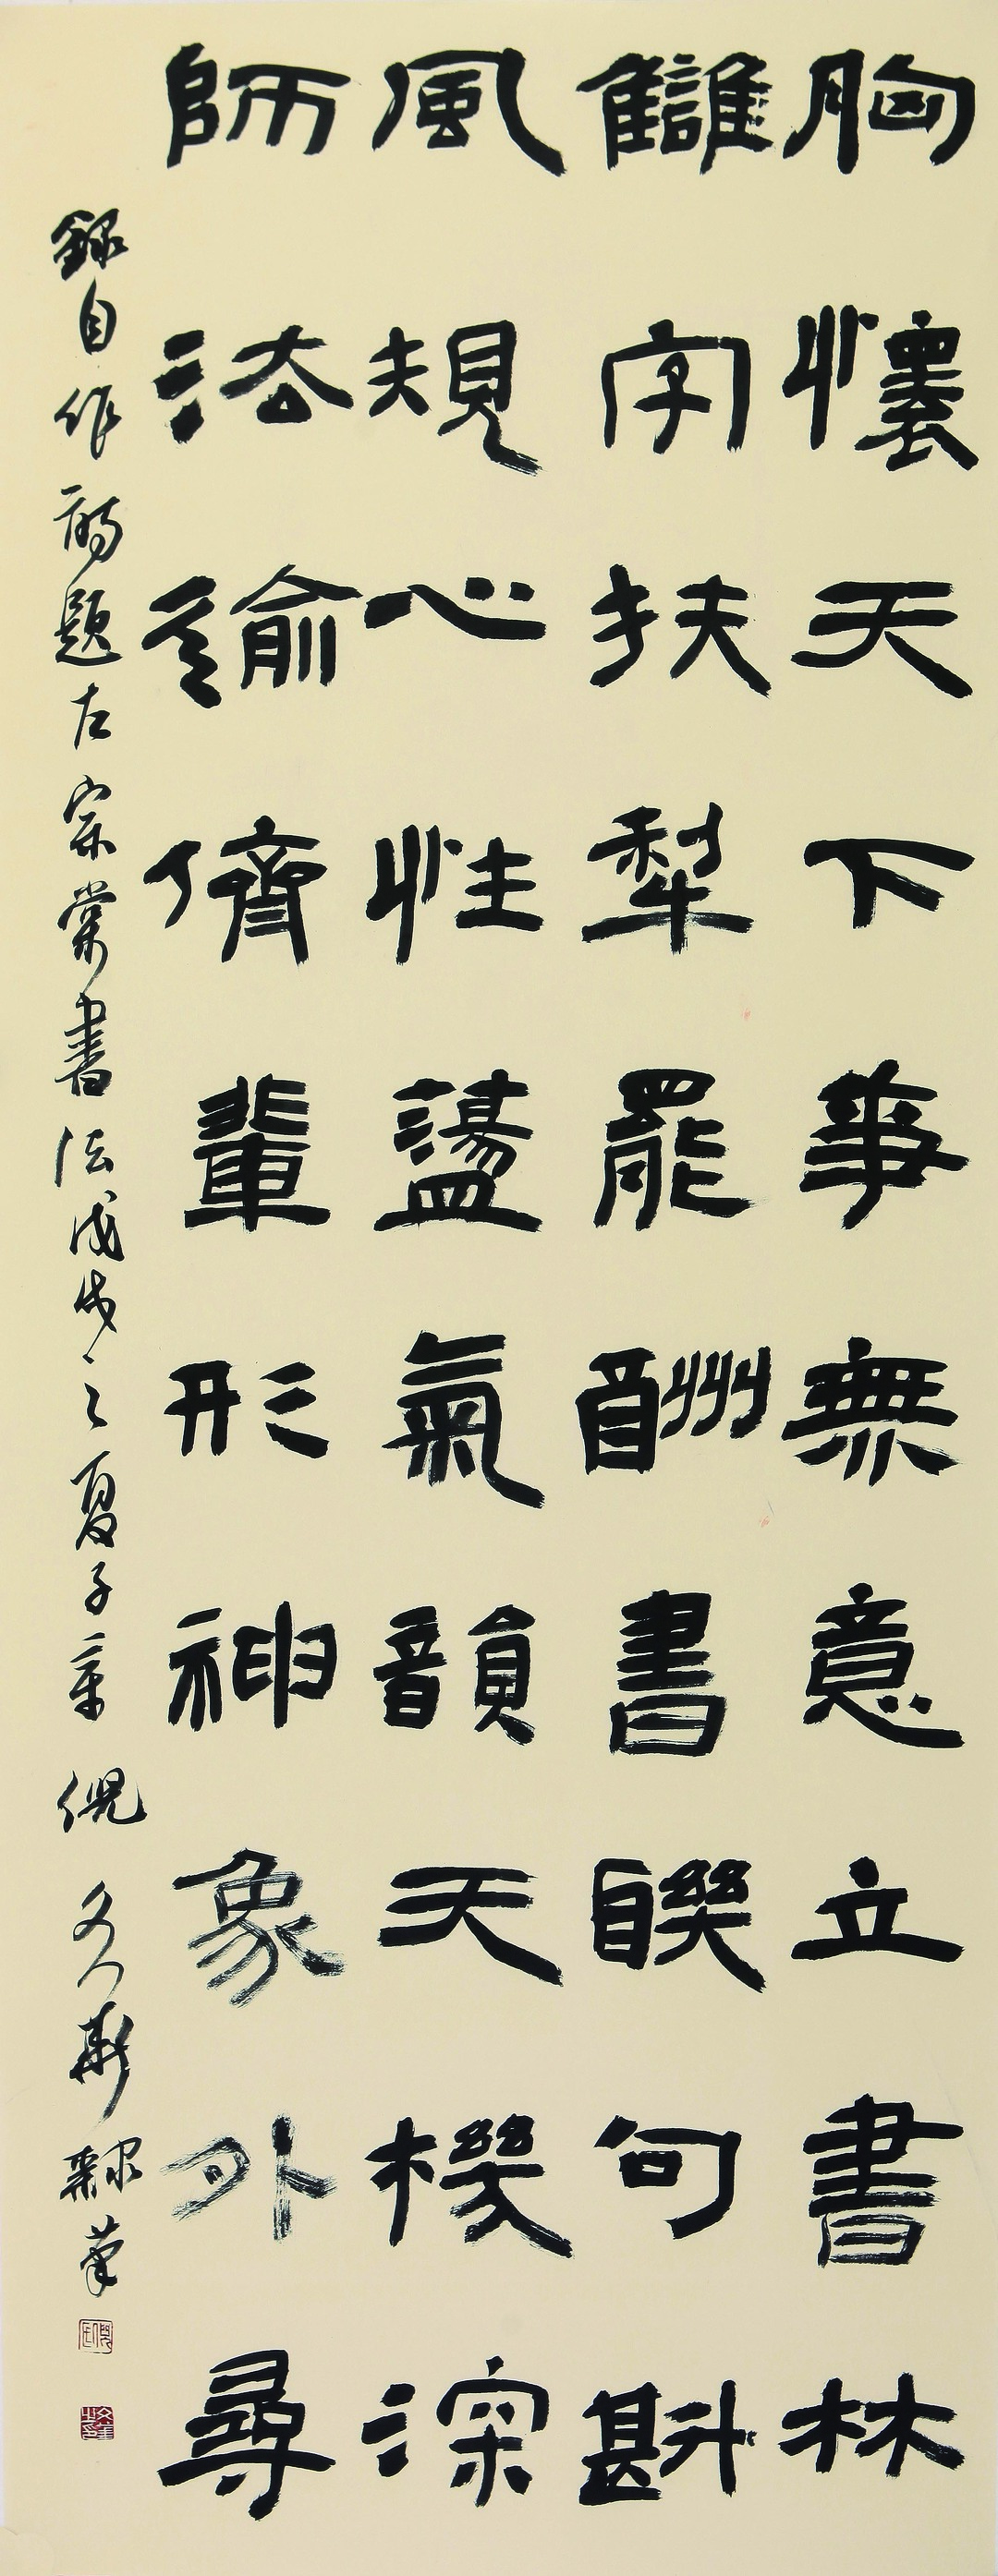 胸懷天下事無意立書林
讎字扶犁罷酬書聯句斟
風規心性盪氣韻天機深
師法逾儕輩形神象外尋
錄自作題左宗棠書法戊戌之夏子章倪文隸筆